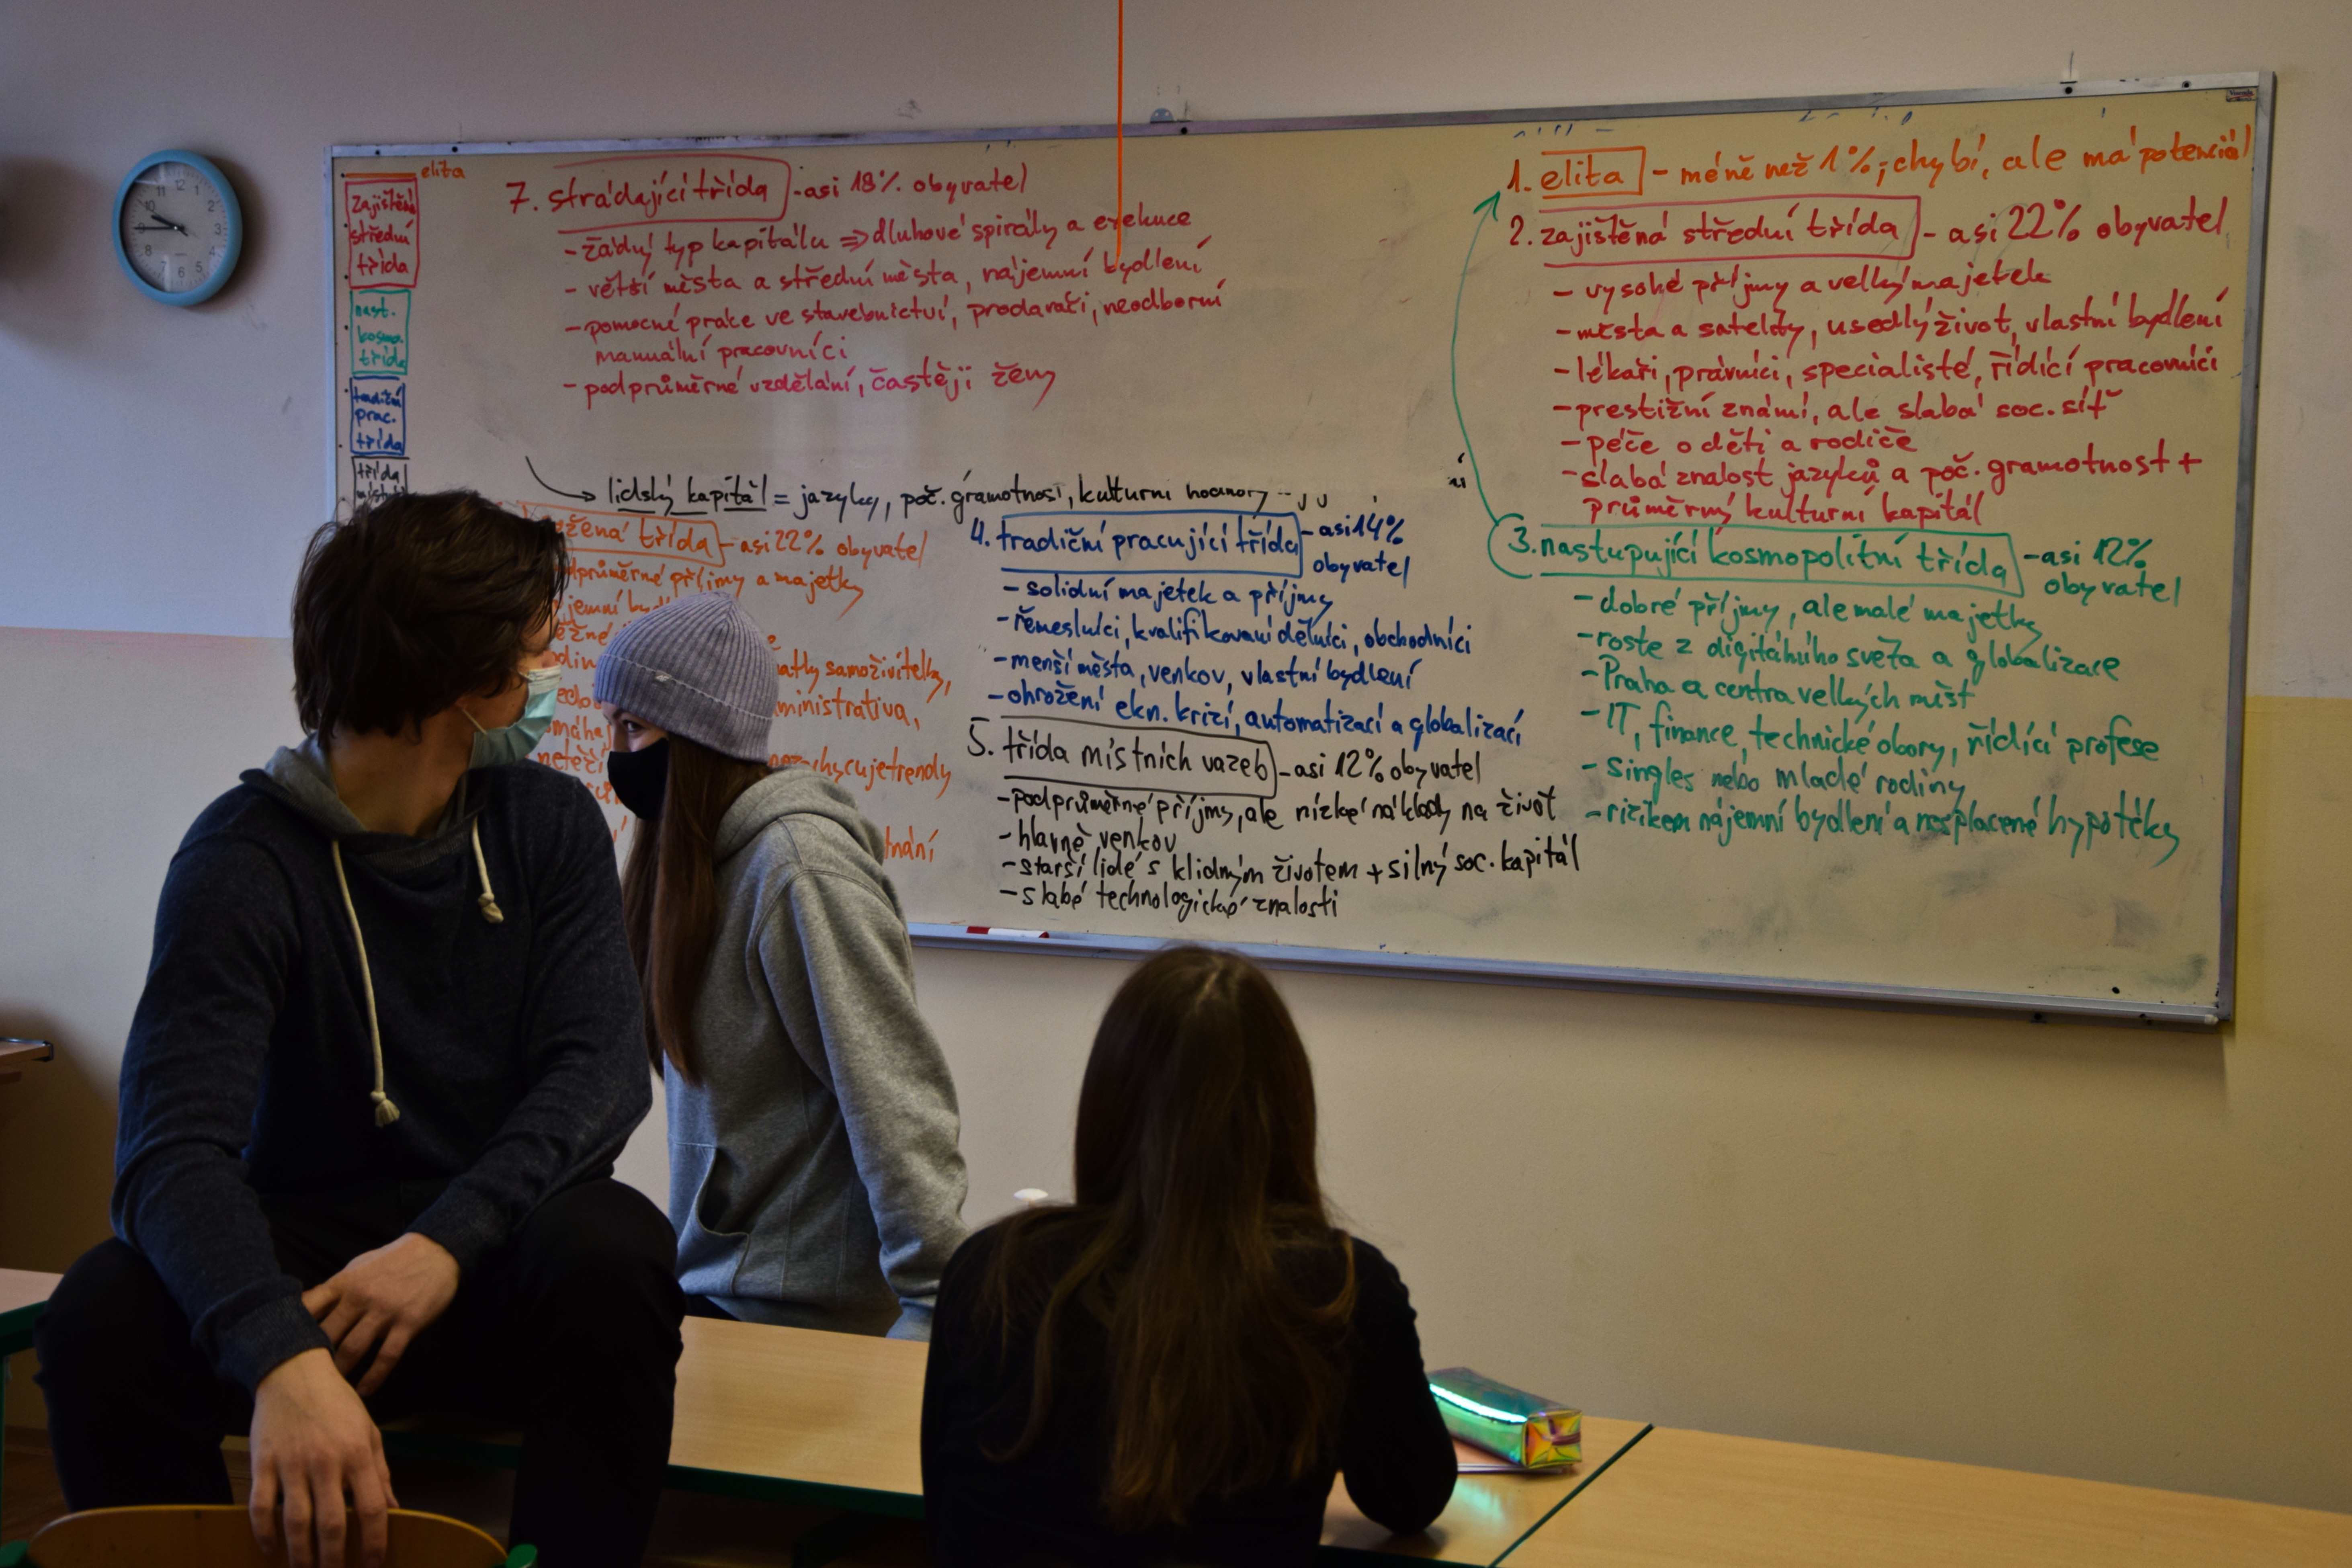 elita
zajištěná
střední
třída
nast.
kosmo.
třída
tradiční
prac.
třída
třída
7. strádající třída - asi 18% obyvatel
- žádný typ kapitálu => dluhové spirály a exekuce
- větší města a střední města, nájemní bydlení
- pomocné práce ve stavebnictví, prodavači, neodborní
manuální pracovníci
- podprůměrné vzdělání, častěji ženy
→ lidský kapitál = jazyky, poč. gramotnost, kulturní hodnoty
třída - asi 22% obyvatel
příjmy a majetky
samoživitelky,
trendy
4. tradiční pracující třída - asi 14%
obyvatel
- solidní majetek a příjmy
- řemeslníci, kvalifikovaní dělníci, obchodníci
- menší města, venkov, vlastní bydlení
- ohrožení ekn. krizí, automatizací a globalizací
5. třída místních vazeb - asi 12% obyvatel
- podprůměrné příjmy, ale nízké náklady na život
- hlavně venkov
- starší lidé s klidným životem + silný soc. kapitál
- slabé technologické znalosti
1. elita - méně než 1%; chybí, ale má potenciál
2. zajištěná střední třída - asi 22% obyvatel
- vysoké příjmy a velký majetek
- města a satelity, usedlý život, vlastní bydlení
- lékaři, právníci, specialisté, řídící pracovníci
- prestižní známí, ale slabá soc. síť
- péče o děti a rodiče
- slabá znalost jazyků a poč. gramotnost +
průměrný kulturní kapitál
3. nastupující kosmopolitní třída - asi 12%
obyvatel
- dobré příjmy, ale malé majetky
- roste z digitálního světa a globalizace
- Praha a centra velkých měst
- IT, finance, technické obory, řídící profese
- singles nebo mladé rodiny
- rizikem nájemní bydlení a nesplacené hypotéky